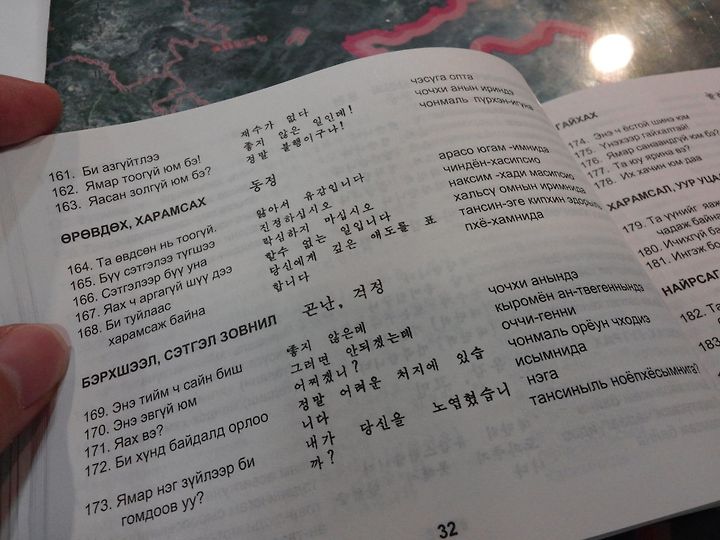 161. Би азгүйтлээ 재수가 없다 чэсуга опта
162. Ямар тоогүй юм бэ! 좋지 않은 일인데! чочхи анын ириндэ
163. Яасан золгүй юм бэ? 정말 불행이구나! чонмаль пурхэн-игуна
ӨРӨВДӨХ, ХАРАМСАХ 동정
164. Та өвдсөн нь тоогүй. 앓아서 유감입니다 арасо югам -имнида
165. Бүү сэтгэлээ түгшээ 진정하십시오 чиндён-хасипсио
166. Сэтгэлээр бүү уна 락심하지 마십시오 наксим -хади масипсио
167. Яах ч аргагүй шүү дээ 할수 없는 일입니다 хальсу омнын иримнида
168. Би туйлаас 당신에게 깊은 애도를 표 тансин-эге кипхин эдорыль
харамсаж байна 합니다 пхё-хамнида
БЭРХШЭЭЛ, СЭТГЭЛ ЗОВНИЛ 곤난, 걱정
169. Энэ тийм ч сайн биш 좋지 않은데 чочхи анындэ
170. Энэ эвгүй юм 그러면 안되겠는데 кыромён ан-твегеннындэ
171. Яах вэ? 어찌겠니? оччи-генни
172. Би хүнд байдалд орлоо 정말 어려운 처지에 있습 чонмаль орёун чходиэ
니다 исымнида
173. Ямар нэг зүйлээр би 내가 당신을 노엽혔습니 нэга
гомдоов уу? 까? тансиныль ноёпхёсымнига?
32
ГАЙХАХ
174. Энэ ч ёстой шинэ юм
175. Үнэхээр гайхалтай!
176. Ямар санаандгүй юм бэ?
177. Та юу ярина вэ?
178. Их хачин юм даа
ХАРАМСАЛ, УУР УЦА
179. Та үүнийг яаж
чадаж байна
180. Ичихгүй б
181. Ингэж б
НАЙРСАГ
182. Та
183.